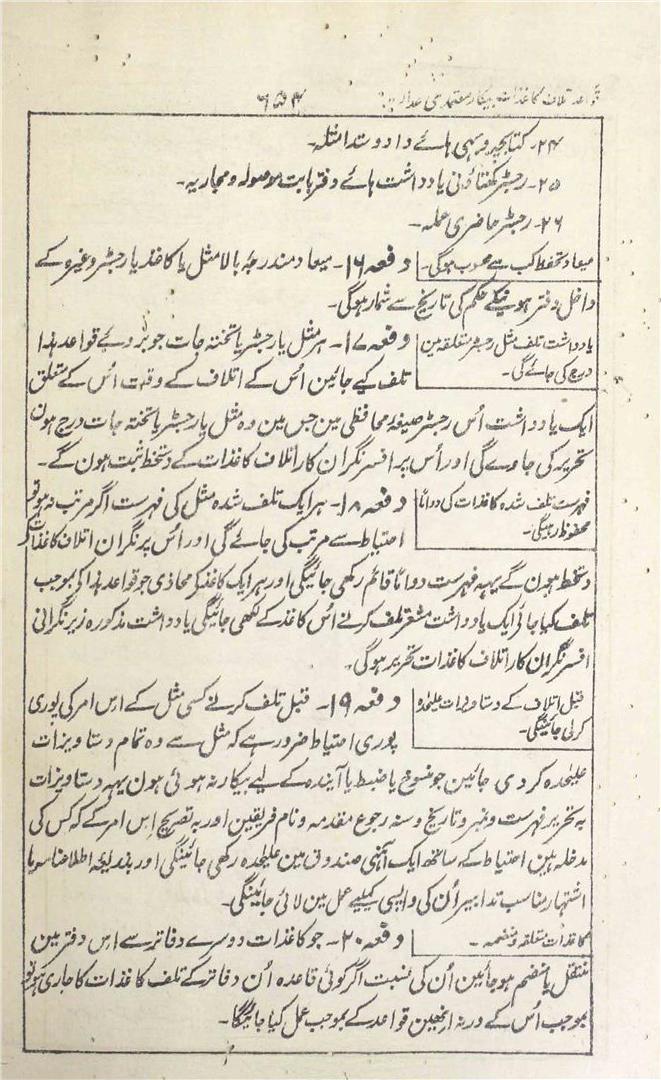 قواعد تلاف کاغذات بیکار معتمدی عدالت ۶۵۴
۲۴۔ کتابچہ و بہی ہائے داد و ستد امثلہ۔
۲۵۔ رجسٹر کھتاؤنی یادداشت ہائے دفتر بابت موصولہ و مجاریہ۔
۲۶۔ رجسٹر حاضری عملہ۔
میعاد تحفظ کب سے محسوب ہوگی۔
دفعہ ۱۶۔ میعاد مندرجۂ بالا مثل یا کاغذ یا رجسٹر وغیرہ کے
داخل دفتر ہونیکے حکم کی تاریخ سے شمار ہوگی۔
یادداشت تلف مثل رجسٹر متعلقہ مین
درج کی جائے گی۔
دفعہ ۱۷۔ ہر مثل یا رجسٹر یا تختہ جات جو بروئے قواعد ہذا
تلف کیے جائین اُس کے اتلاف کے وقت اُس کے متعلق
ایک یادداشت اُس رجسٹر صیغۂ محافظی مین جس مین وہ مثل یا رجسٹر یا تختہ جات درج ہون
تحریر کی جاوے گی اور اُس پر افسر نگران کار اتلاف کاغذات کے دستخط ثبت ہون گے۔
فہرست تلف شدہ کاغذات کی دواماً
محفوظ رہیگی۔
دفعہ ۱۸۔ ہر ایک تلف شدہ مثل کی فہرست اگر مرتب نہ ہو تو
احتیاط سے مرتب کی جائے گی اور اُس پر نگران اتلاف کاغذات کے
دستخط ہون گے یہہ فہرست دواماً قائم رکھی جائیگی اور ہر ایک کاغذ کے محاذی جو قواعد ہذا کے بموجب
تلف کیا جائے ایک یادداشت مشعر تلف کرنے اُس کاغذ کے لکھی جائیگی یادداشت مذکورہ زیر نگرانی
افسر نگران کار اتلاف کاغذات تحریر ہوگی۔
قبل اتلاف کے دستاویزات علیحدہ
کرلی جائینگی۔
دفعہ ۱۹۔ قبل تلف کرنے کسی مثل کے اس امر کی پوری
پوری احتیاط ضرور ہے کہ مثل سے وہ تمام دستاویزات
علیحدہ کردی جائین جو منسوخ یا ضبط یا آیندہ کے لیے بیکار نہ ہوئی ہون یہہ دستاویزات
بہ تحریر فہرست و نمبر و تاریخ و سنہ رجوع مقدمہ و نام فریقین اور بہ تصریح اِس امر کے کہ کس کی
مدخلہ ہین احتیاط کے ساتھ ایک آہنی صندوق مین علیحدہ رکھی جائینگی اور بذریعہ اطلاعنامہ یا
اشتہار مناسب تدابیر اُن کی واپسی کیلیے عمل مین لائی جائینگی۔
کاغذات متعلقہ و منضمہ۔
دفعہ ۲۰۔ جو کاغذات دوسرے دفاتر سے اس دفتر مین
منتقل یا منضم ہو جائین اُن کی نسبت اگر کوئی قاعدہ اُن دفاتر کے تلف کاغذات کا جاری ہو تو
بموجب اُس کے ورنہ انھین قواعد کے بموجب عمل کیا جائیگا۔